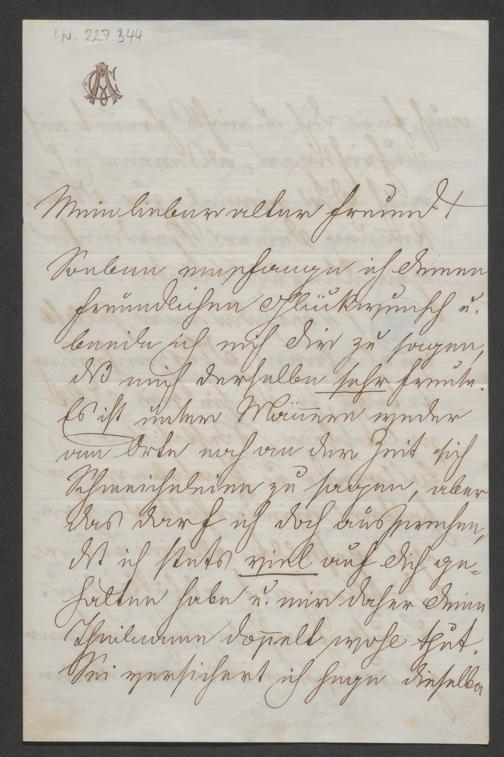 I.N. 227.344
Mein lieber alter Freund!
Soeben empfange ich deinen
freundlichen Glückwunsch u.
beeile ich mich dir zu sagen,
daß mich derselbe sehr freute.
Es ist unter Männern weder
am Orte noch an der Zeit sich
Schmeicheleien zu sagen, aber
das darf ich doch aussprechen,
daß ich stets viel auf dich ge-
halten habe u. mir daher deine
Theilname doppelt wohl thut.
Sei versichert ich hege dieselbe